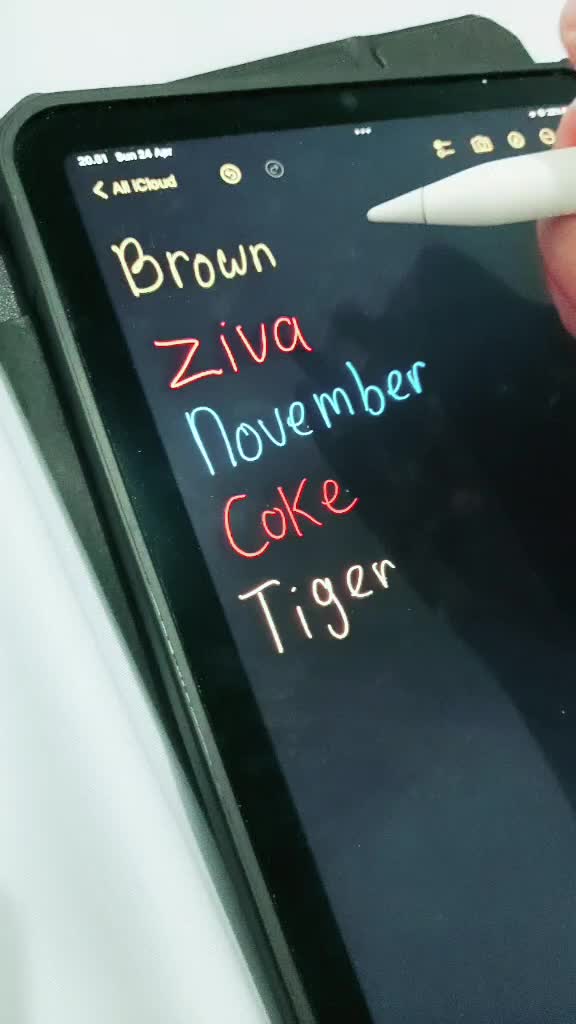 20.01 Sun 24 Apr
All iCloud
Brown
Ziva
November
Coke
Tiger